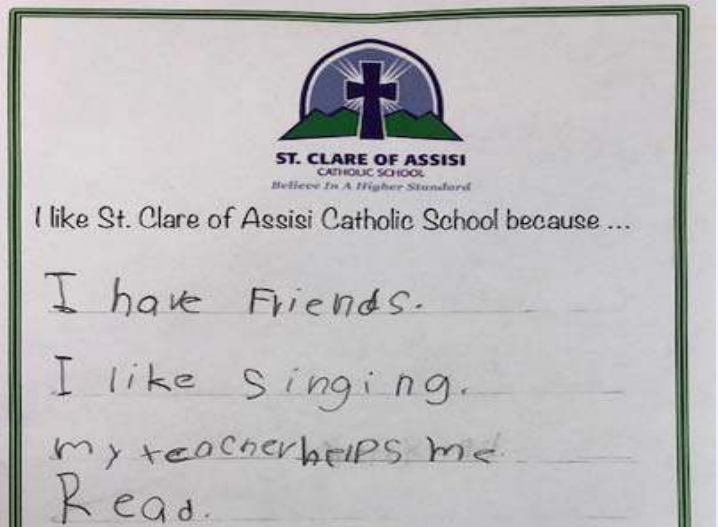 ST. CLARE OF ASSISI
CATHOLIC SCHOOL
Believe In A Higher Standard
I like St. Clare of Assisi Catholic School because ...
I have Friends.
I like singing.
my teacher helps me
Read.